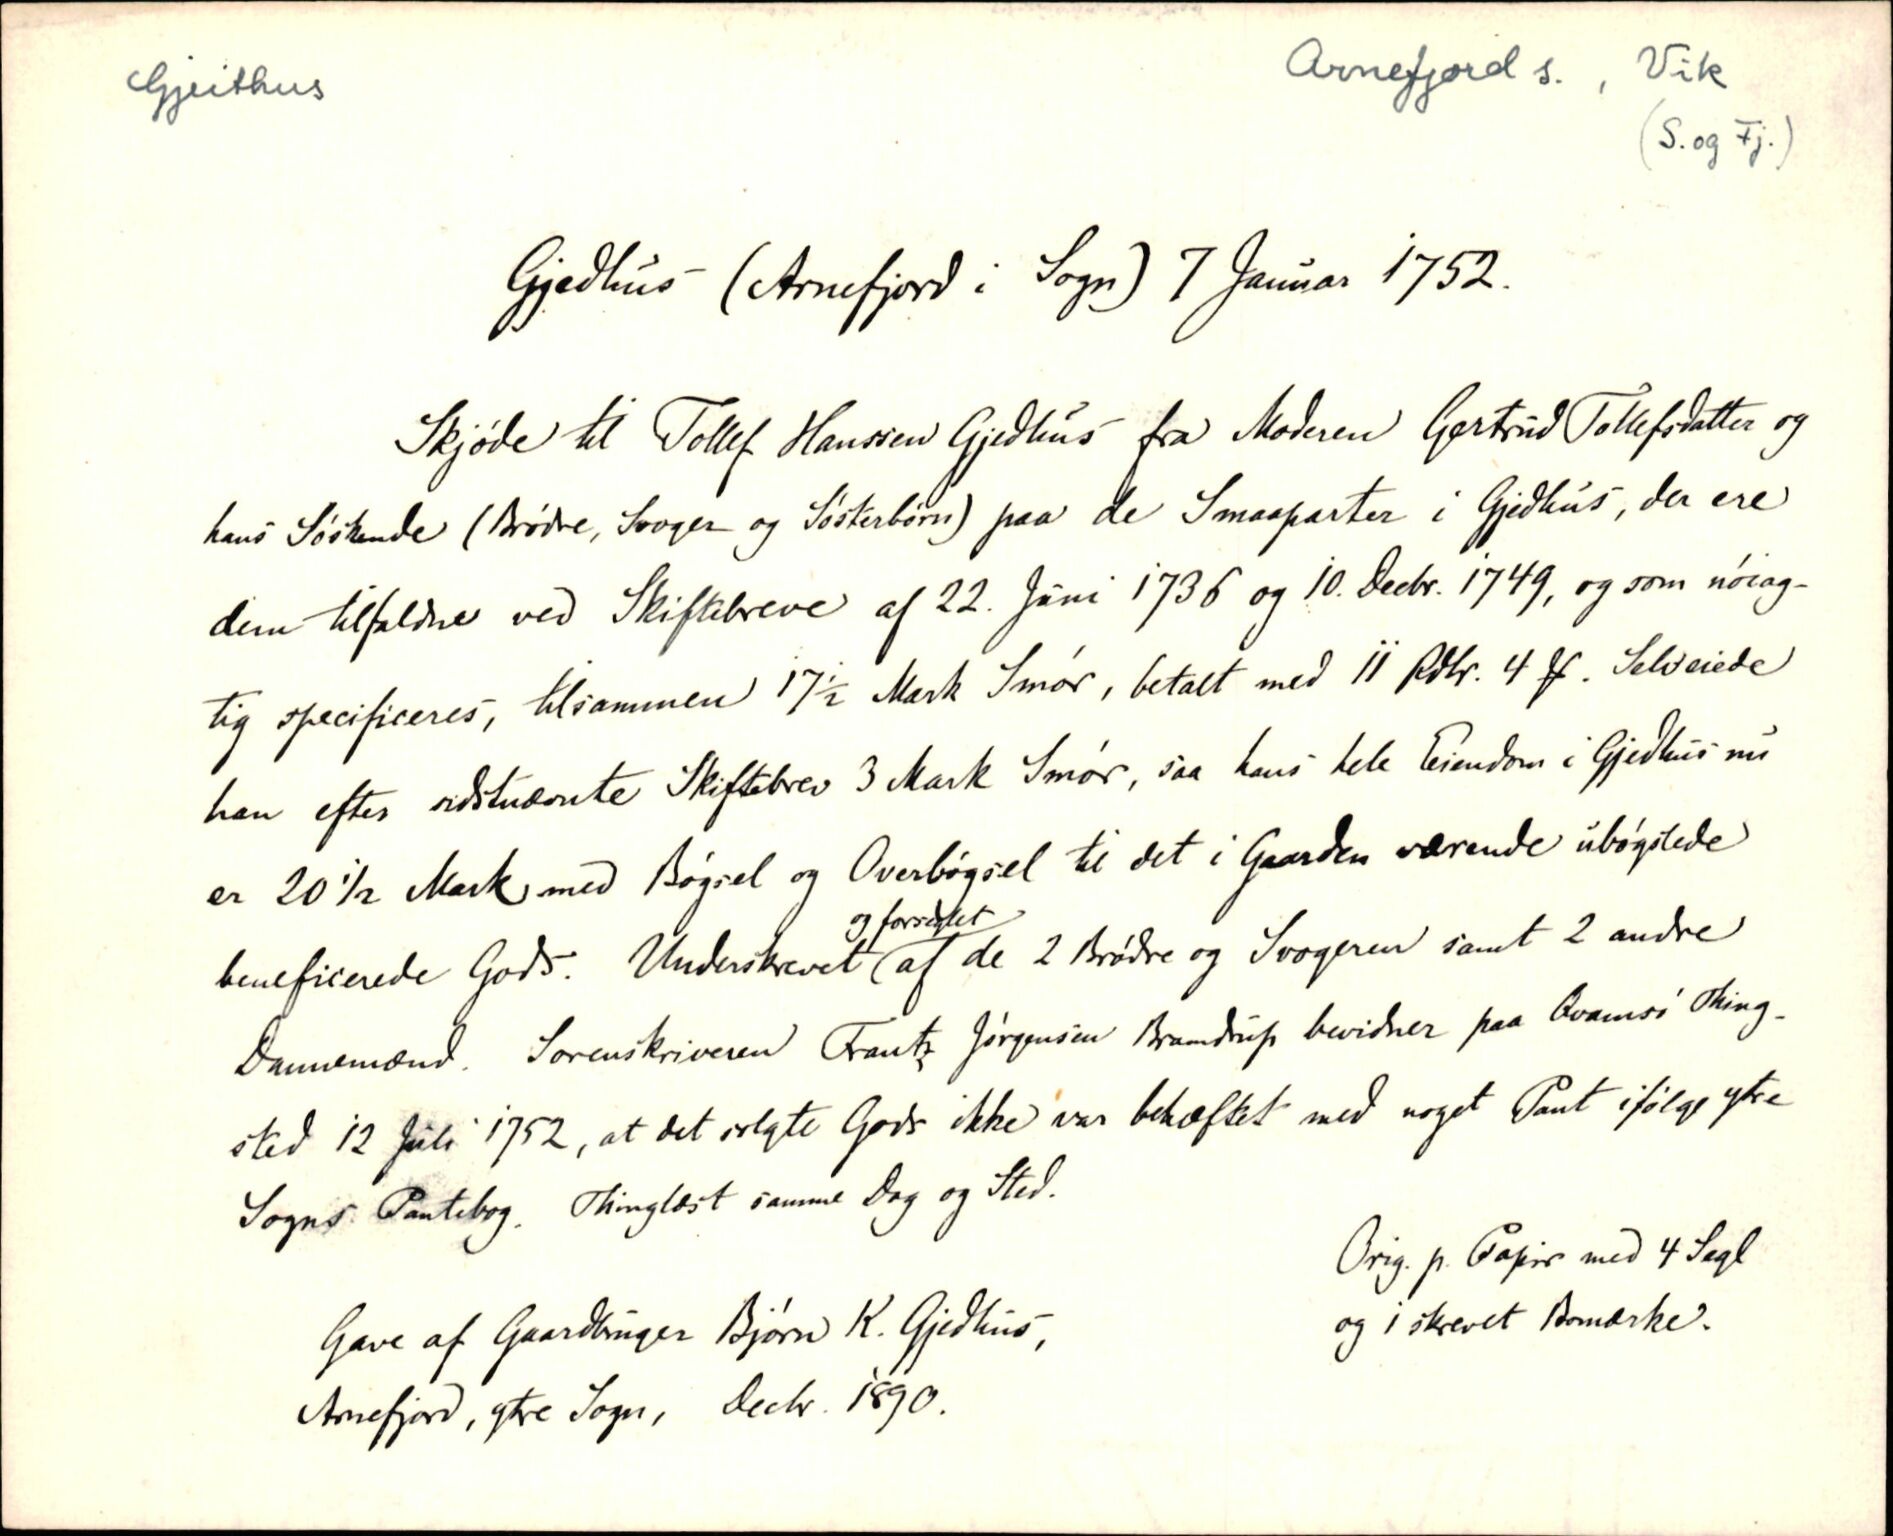 Gjeithus
Arnefjord s., Vik
(S. og Fj.)
Gjedhus (Arnefjord i Sogn) 7 Januar 1752.
Skjöde til Tollef Hanssen Gjedhus fra Moderen Gertrud Tollefsdatter og
hans Söskende (Brödre, Svoger og Sösterbörn) paa de Smaaparter i Gjedhus, der ere
dem tilfaldne ved Skiftebreve af 22. Juni 1736 og 10. Decbr. 1749, og som nöiag-
tig specificeres, tilsammen 17½ Mark Smör, betalt med 11 Rdlr. 4 ꝟ. Selveiede
han efter sidstnævnte Skiftebrev 3 Mark Smör, saa hans hele Eiendom i Gjedhus nu
er 20 1/2 Mark med Bögsel og Overbögsel til det i Gaarden værende ubögslede
beneficerede Gods. Underskrevet og forseglet af de 2 Brödre og Svogeren samt 2 andre
Dannemænd. Sorenskriveren Frantz Jörgensen Bramdrup bevidner paa Qvamsö Thing-
sted 12 Juli 1752, at det solgte Gods ikke var behæftet med noget Pant ifölge ytre
Sogns Pantebog. Thinglæst samme Dag og Sted.
Orig. p. Papir med 4 Segl
og 1 skrevet Bomærke.
Gave af Gaardbruger Björn K. Gjedhus,
Arnefjord, ytre Sogn, Decbr. 1890.